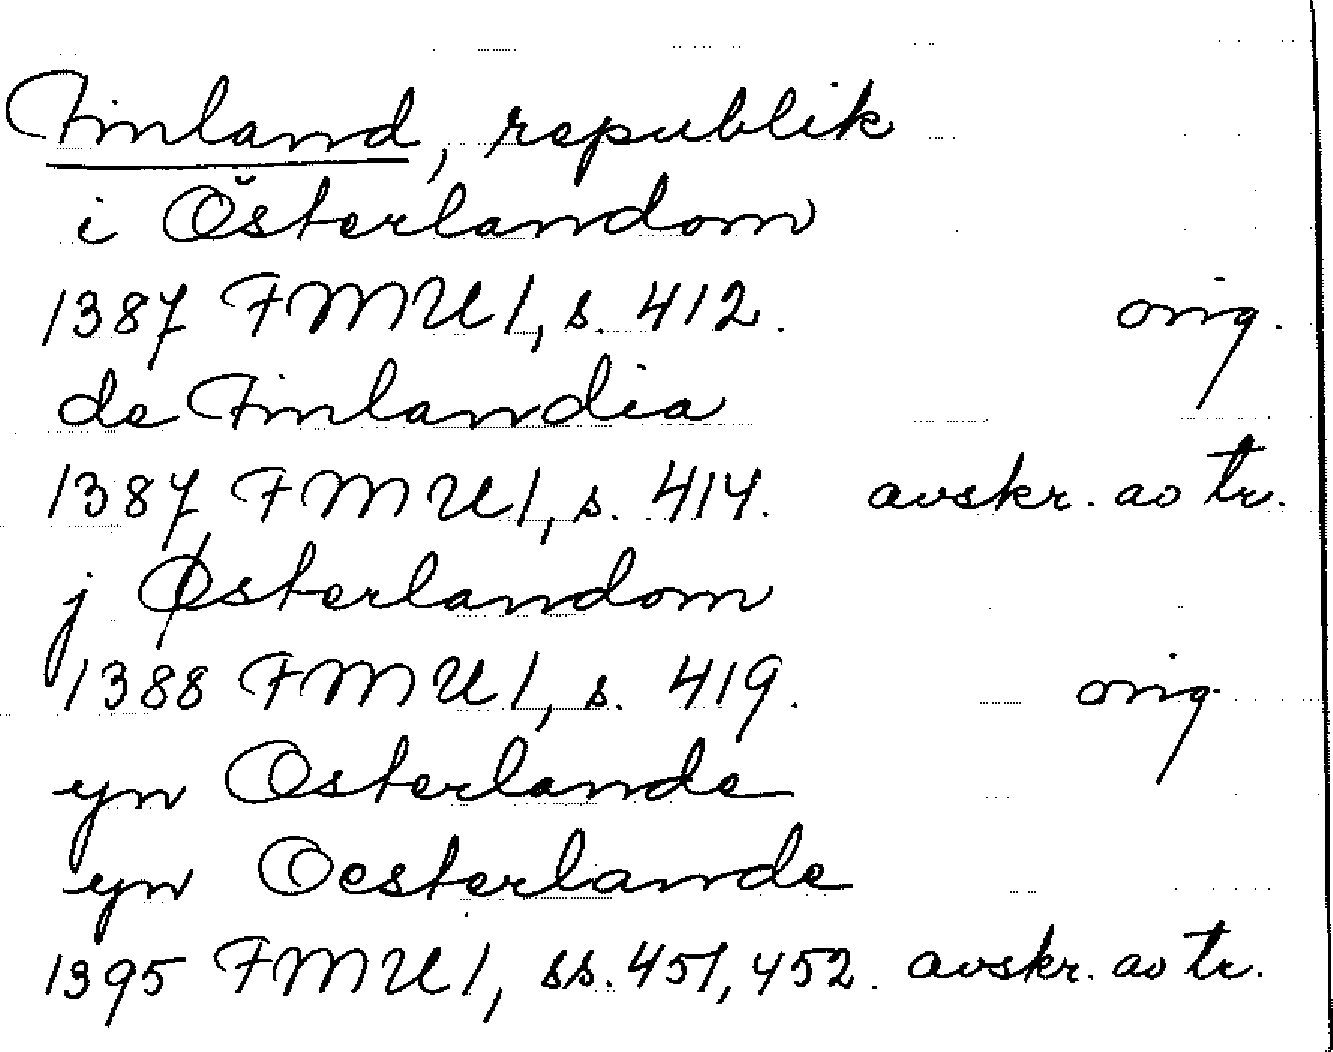 Finland, republik
i Österlandom
1387 FMU I, s. 412. orig.
de Finlandia
1387 FMU I, s. 414. avskr. av tr.
j Østerlandom
1388 FMU I, s. 419. orig.
yn Osterlande
yn Oesterlande
1395 FMU I, ss. 451, 452. avskr. av tr.